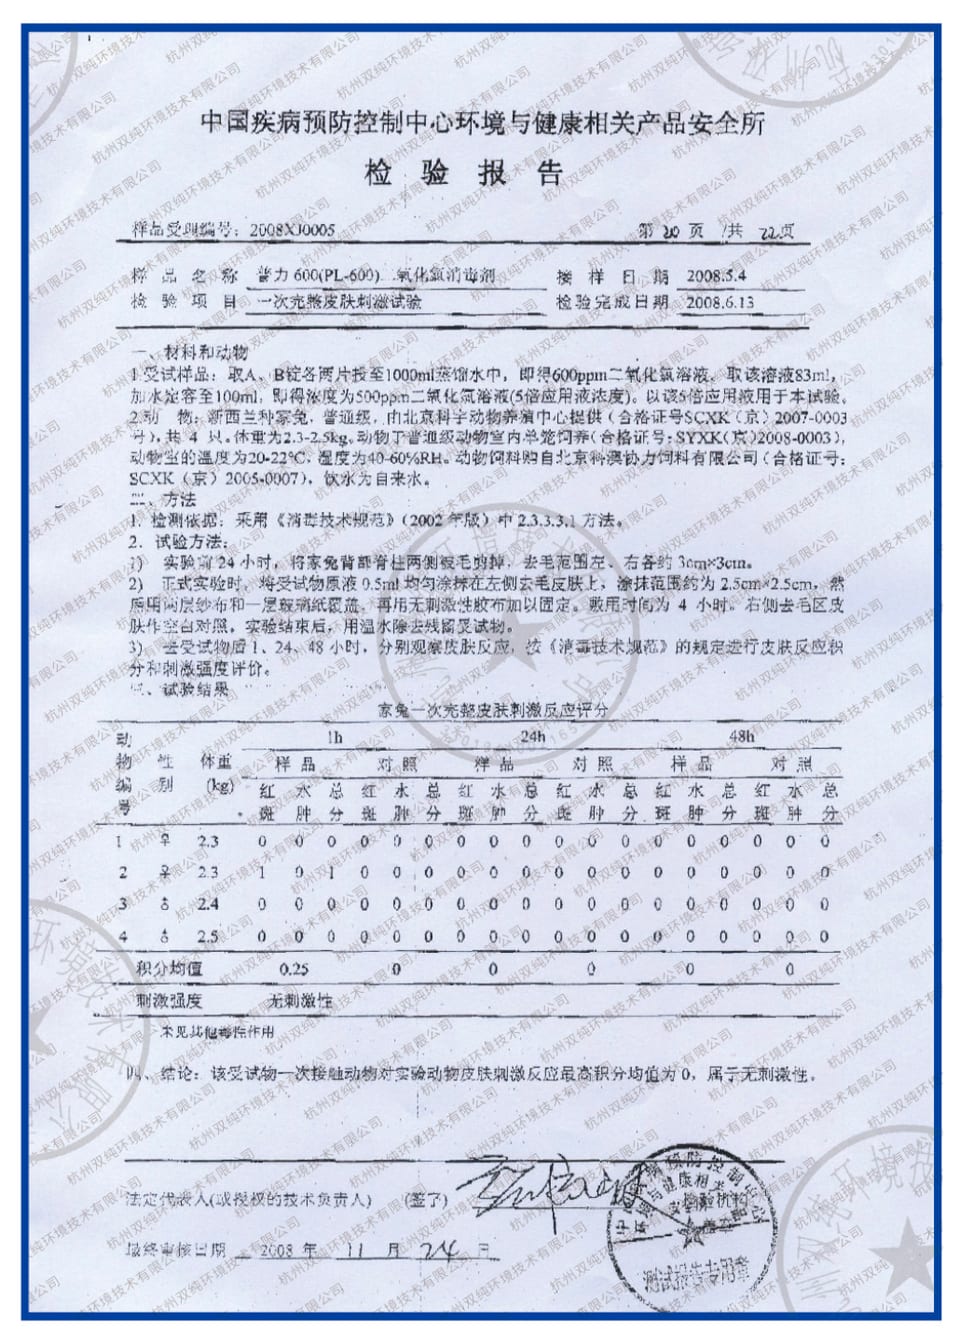 中国疾病预防控制中心环境与健康相关产品安全所
检 验 报 告
样品受理编号：2008XJ0005 第 20 页 /共 22页
样 品 名 称 普力600(PL-600)二氧化氯消毒剂 接 样 日 期 2008.5.4
检 验 项 目 一次完整皮肤刺激试验 检验完成日期 2008.6.13
一、材料和动物
1.受试样品：取A、B锭各两片投至1000ml蒸馏水中，即得600ppm二氧化氯溶液，取该溶液83ml，
加水定容至100ml，即得浓度为500ppm二氧化氯溶液(5倍应用液浓度)。以该5倍应用液用于本试验。
2.动 物：新西兰种家兔，普通级，由北京科宇动物养殖中心提供（合格证号SCXK（京）2007-0003
号），共 4 只。体重为2.3-2.5kg。动物于普通级动物室内单笼饲养（合格证号：SYXK(京)2008-0003），
动物室的温度为20-22℃，湿度为40-60%RH。动物饲料购自北京科澳协力饲料有限公司（合格证号：
SCXK（京）2005-0007），饮水为自来水。
二、方法
1. 检测依据：采用《消毒技术规范》（2002 年版）中 2.3.3.3.1 方法。
2. 试验方法：
1) 实验前 24 小时，将家兔背部脊柱两侧被毛剪掉，去毛范围左、右各约 3cm×3cm。
2) 正式实验时，将受试物原液 0.5ml 均匀涂抹在左侧去毛皮肤上，涂抹范围约为 2.5cm×2.5cm，然
后用两层纱布和一层玻璃纸覆盖，再用无刺激性胶布加以固定。敷用时间为 4 小时。右侧去毛区皮
肤作空白对照，实验结束后，用温水除去残留受试物。
3) 去受试物后 1、24、48 小时，分别观察皮肤反应，按《消毒技术规范》的规定进行皮肤反应积
分和刺激强度评价。
三、试验结果
家兔一次完整皮肤刺激反应评分
动物编号 性别 体重(kg) 1h 24h 48h
样品 对照 样品 对照 样品 对照
红斑 水肿 总分 红斑 水肿 总分 红斑 水肿 总分 红斑 水肿 总分 红斑 水肿 总分 红斑 水肿 总分
1 ♀ 2.3 0 0 0 0 0 0 0 0 0 0 0 0 0 0 0 0 0 0
2 ♀ 2.3 1 0 1 0 0 0 0 0 0 0 0 0 0 0 0 0 0 0
3 ♂ 2.4 0 0 0 0 0 0 0 0 0 0 0 0 0 0 0 0 0 0
4 ♂ 2.5 0 0 0 0 0 0 0 0 0 0 0 0 0 0 0 0 0 0
积分均值 0.25 0 0 0 0 0
刺激强度 无刺激性
未见其他毒性作用
四、结论：该受试物一次接触动物对实验动物皮肤刺激反应最高积分均值为 0，属于无刺激性。
法定代表人(或授权的技术负责人) (签字)
检验机构
测试报告专用章
最终审核日期 2008 年 11 月 24 日
杭州双纯环境技术有限公司